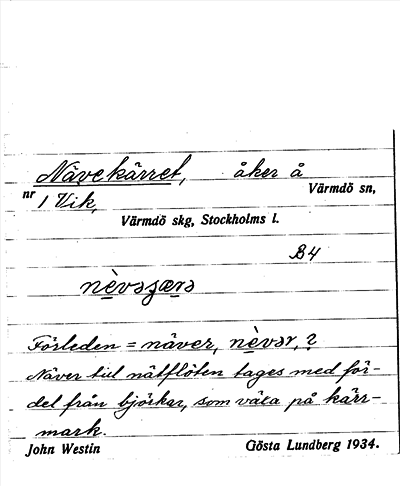 Nävekärret, åker å
nr 1 Vik, Värmdö sn,
Värmdö skg, Stockholms l.
B4
nè̱vəʒæ̱rə
Förleden = näver, nè̱vər, ?
Näver till nätflöten tages med för-
del från björkar, som växa på kärr-
mark.
John Westin Gösta Lundberg 1934.